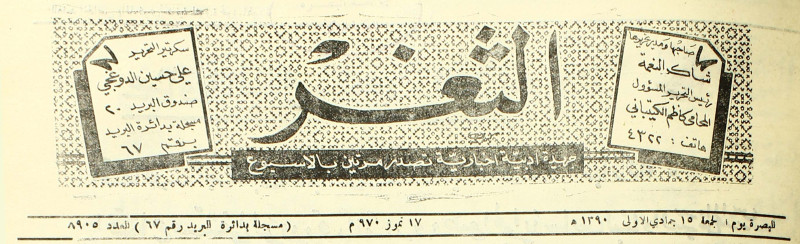 صاحبها ومدير تحريرها
شاكر النعمة
رئيس التحرير المسؤول
المحامي كاظم الكيتباني
هاتف : ٤٣٢٢
الثغر
جريدة ادبية اخبارية تصدر مرتين بالاسبوع
سكرتير التحرير
علي حسين الدوغجي
صندوق البريد ٢٠
مسجلة بدائرة البريد
برقم ٦٧
البصرة يوم الجمعة ١٥ جمادي الاولى ١٣٩٠ ھ ١٧ تموز ٩٧٠ م ( مسجلة بدائرة البريد رقم ٦٧ ) العدد ٨٩٠٥